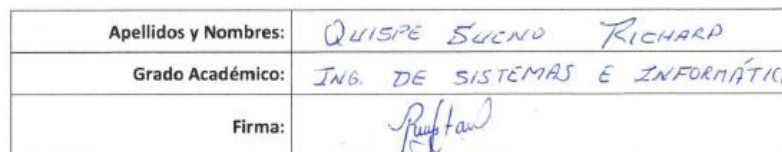 Apellidos y Nombres: QUISPE SUENO RICHARD
Grado Académico: ING. DE SISTEMAS E INFORMÁTICA
Firma: